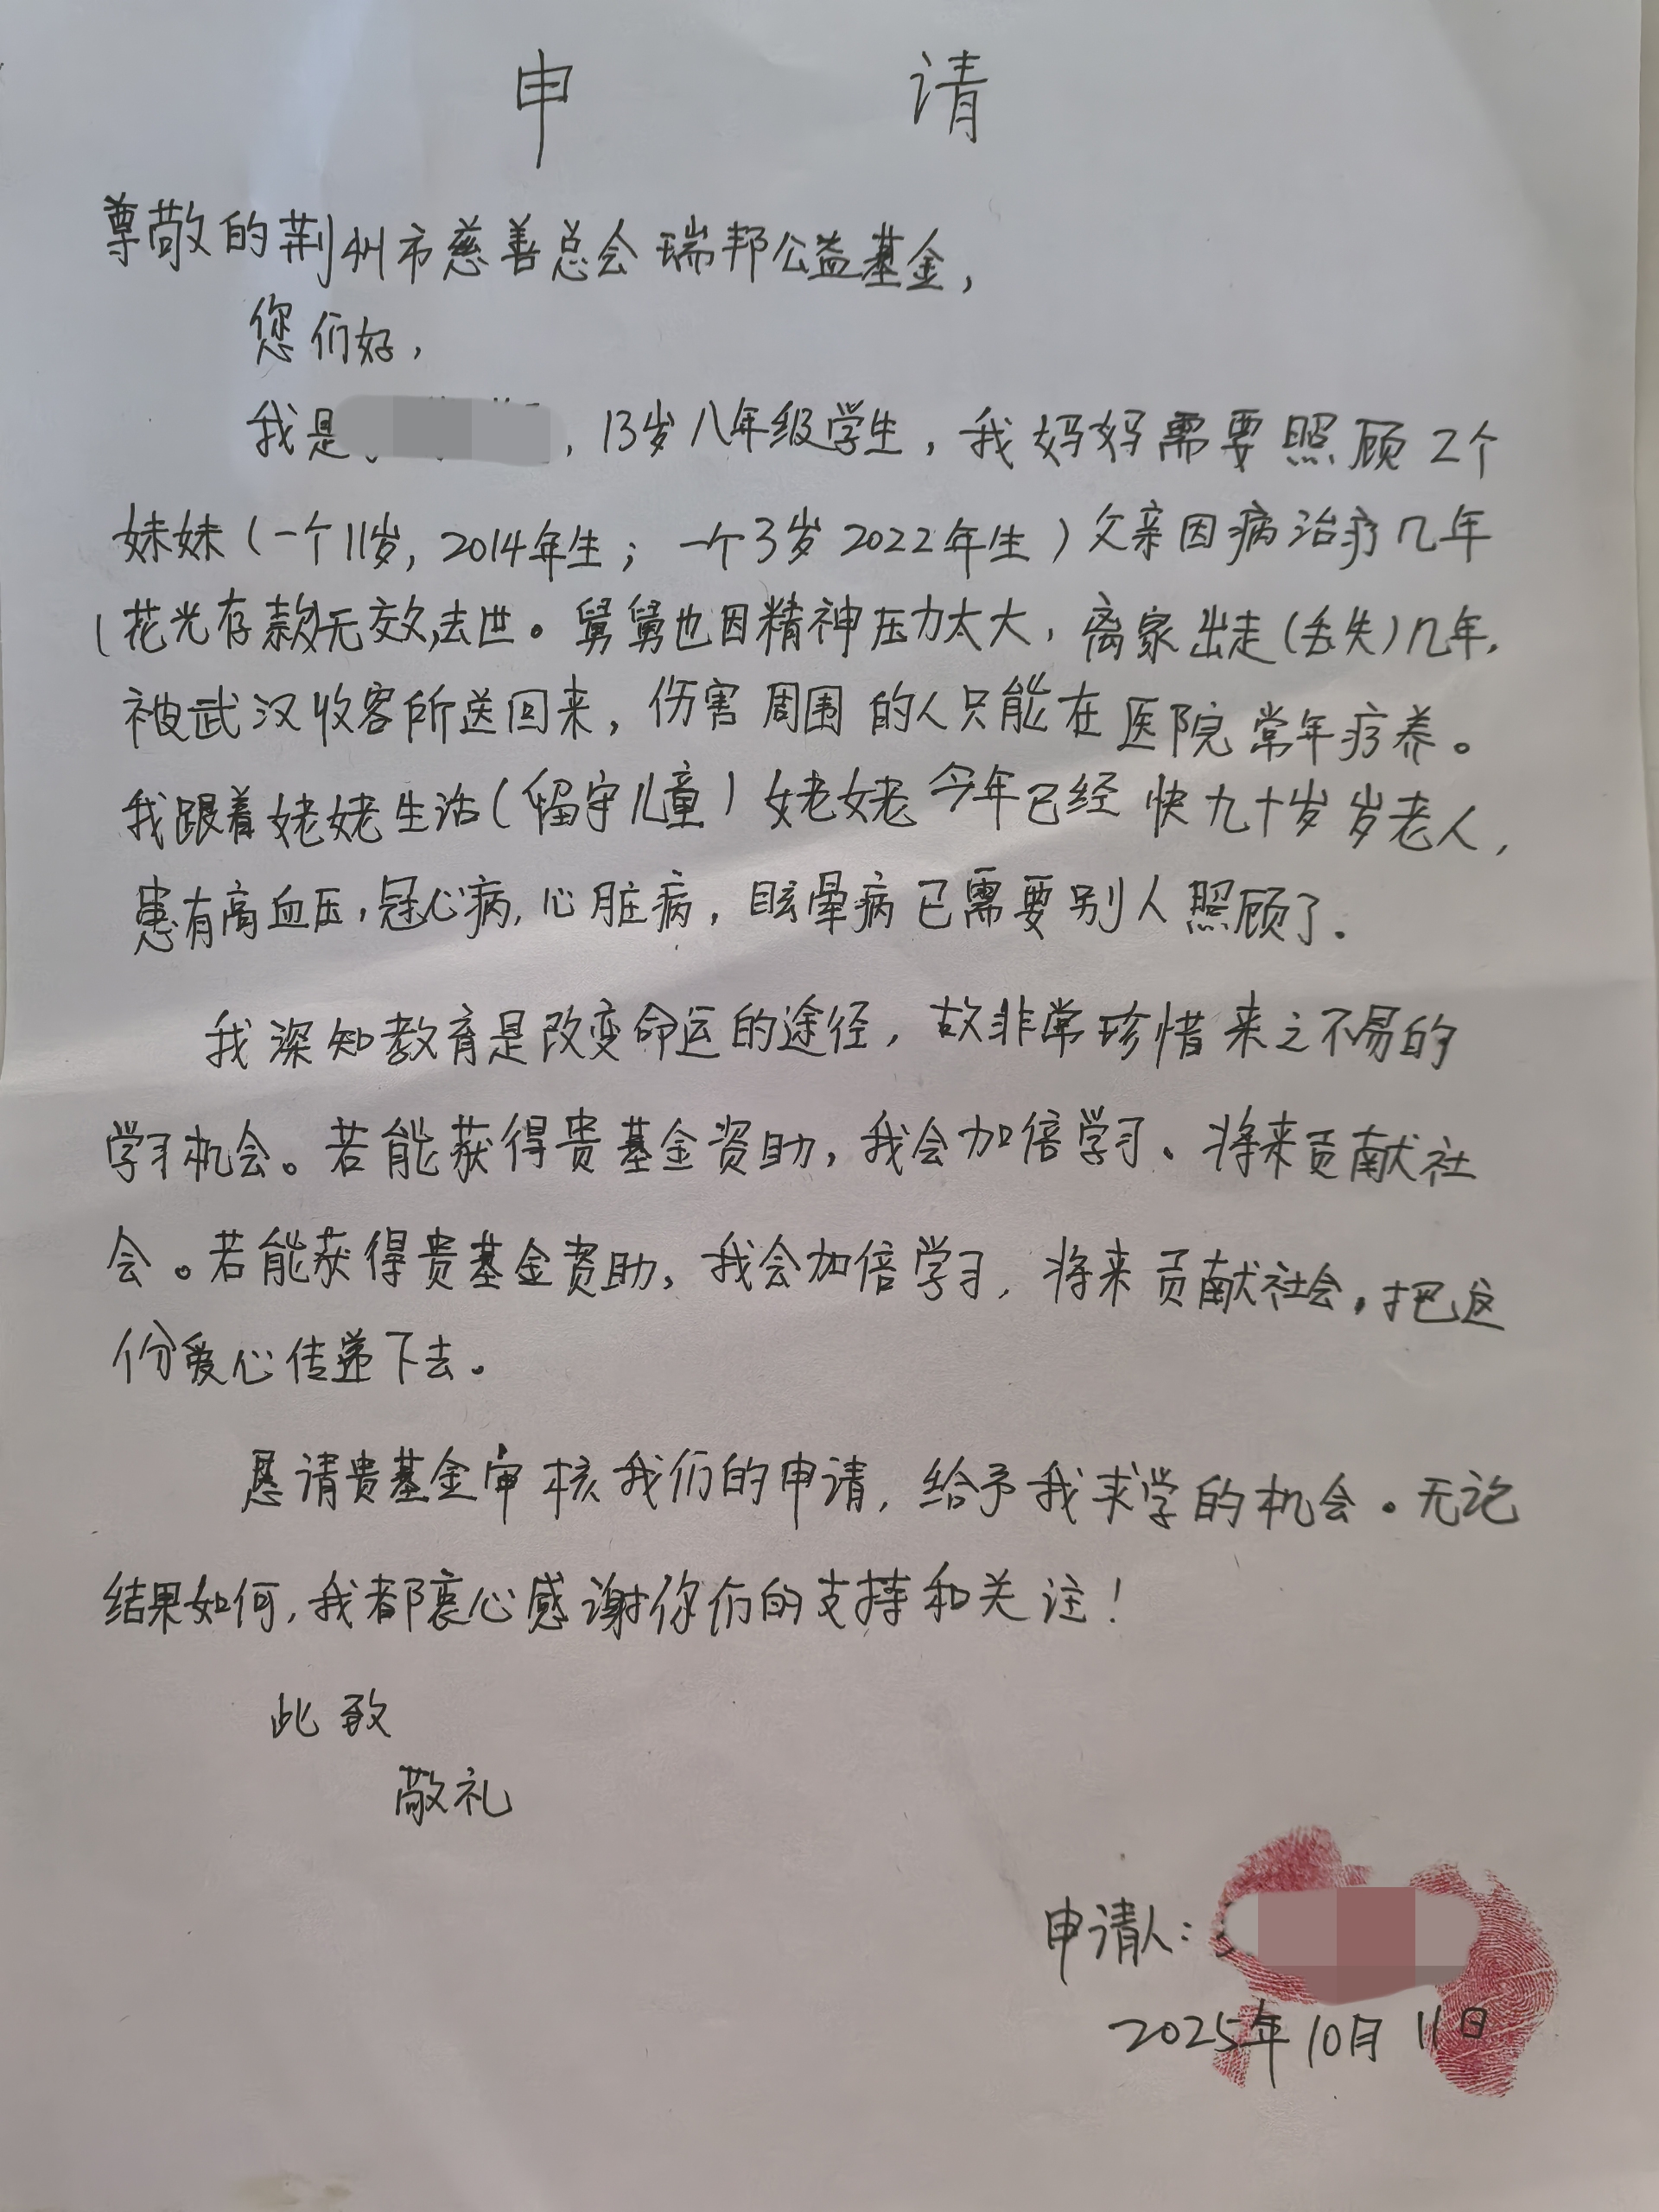 申 请
尊敬的荆州市慈善总会瑞邦公益基金,
您们好,
我是 , 13岁八年级学生,我妈妈需要照顾2个
妹妹(一个11岁, 2014年生; 一个3岁 2022年生)父亲因病治疗几年
(花光存款)无效,去世。舅舅也因精神压力太大,离家出走(丢失)几年,
被武汉收客所送回来,伤害周围的人只能在医院常年疗养。
我跟着姥姥生活(留守儿童)姥姥今年已经快九十岁岁老人,
患有高血压,冠心病,心脏病,眩晕病已需要别人照顾了.
我深知教育是改变命运的途径,故非常珍惜来之不易的
学习机会。若能获得贵基金资助,我会加倍学习.将来贡献社
会。若能获得贵基金资助,我会加倍学习,将来贡献社会,把这
份爱心传递下去。
恳请贵基金审核我们的申请,给予我求学的机会。无论
结果如何,我都衷心感谢你们的支持和关注!
此致
敬礼
申请人:
2025年10月11日